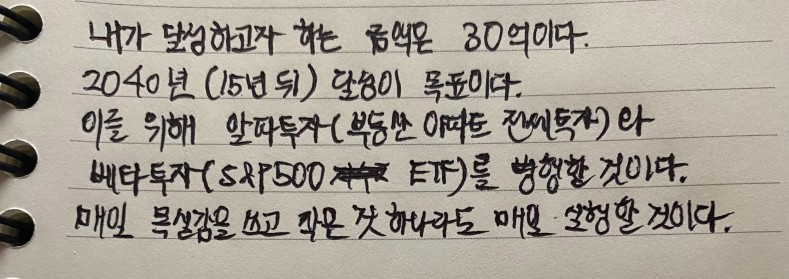 내가 달성하고자 하는 금액은 30억이다.
2040년 (15년 뒤) 달성이 목표이다.
이를 위해 알파투자(부동산 아파트 전세투자)와
베타투자(S&P500 ETF)를 병행할 것이다.
매일 목실감을 쓰고 작은 것 하나라도 매일 실행할 것이다.